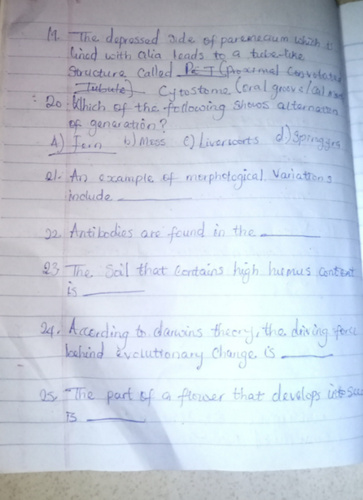 19. The depressed side of paramecium which is
lined with cilia leads to a tube-like
Structure called PCT (Proximal Convoluted
Tubule) Cytostome (oral groove
20. Which of the following Shows alternation
of generation?
A) Fern b) Moss c) Liverworts d)
21. An example of morphological Variations
include ______
22. Antibodies are found in the ______
23. The Soil that Contains high humus content
is ______
24. According to darwins theory, the driving force
behind evolutionary change is ______
25. The part of a flower that develops into
is ______